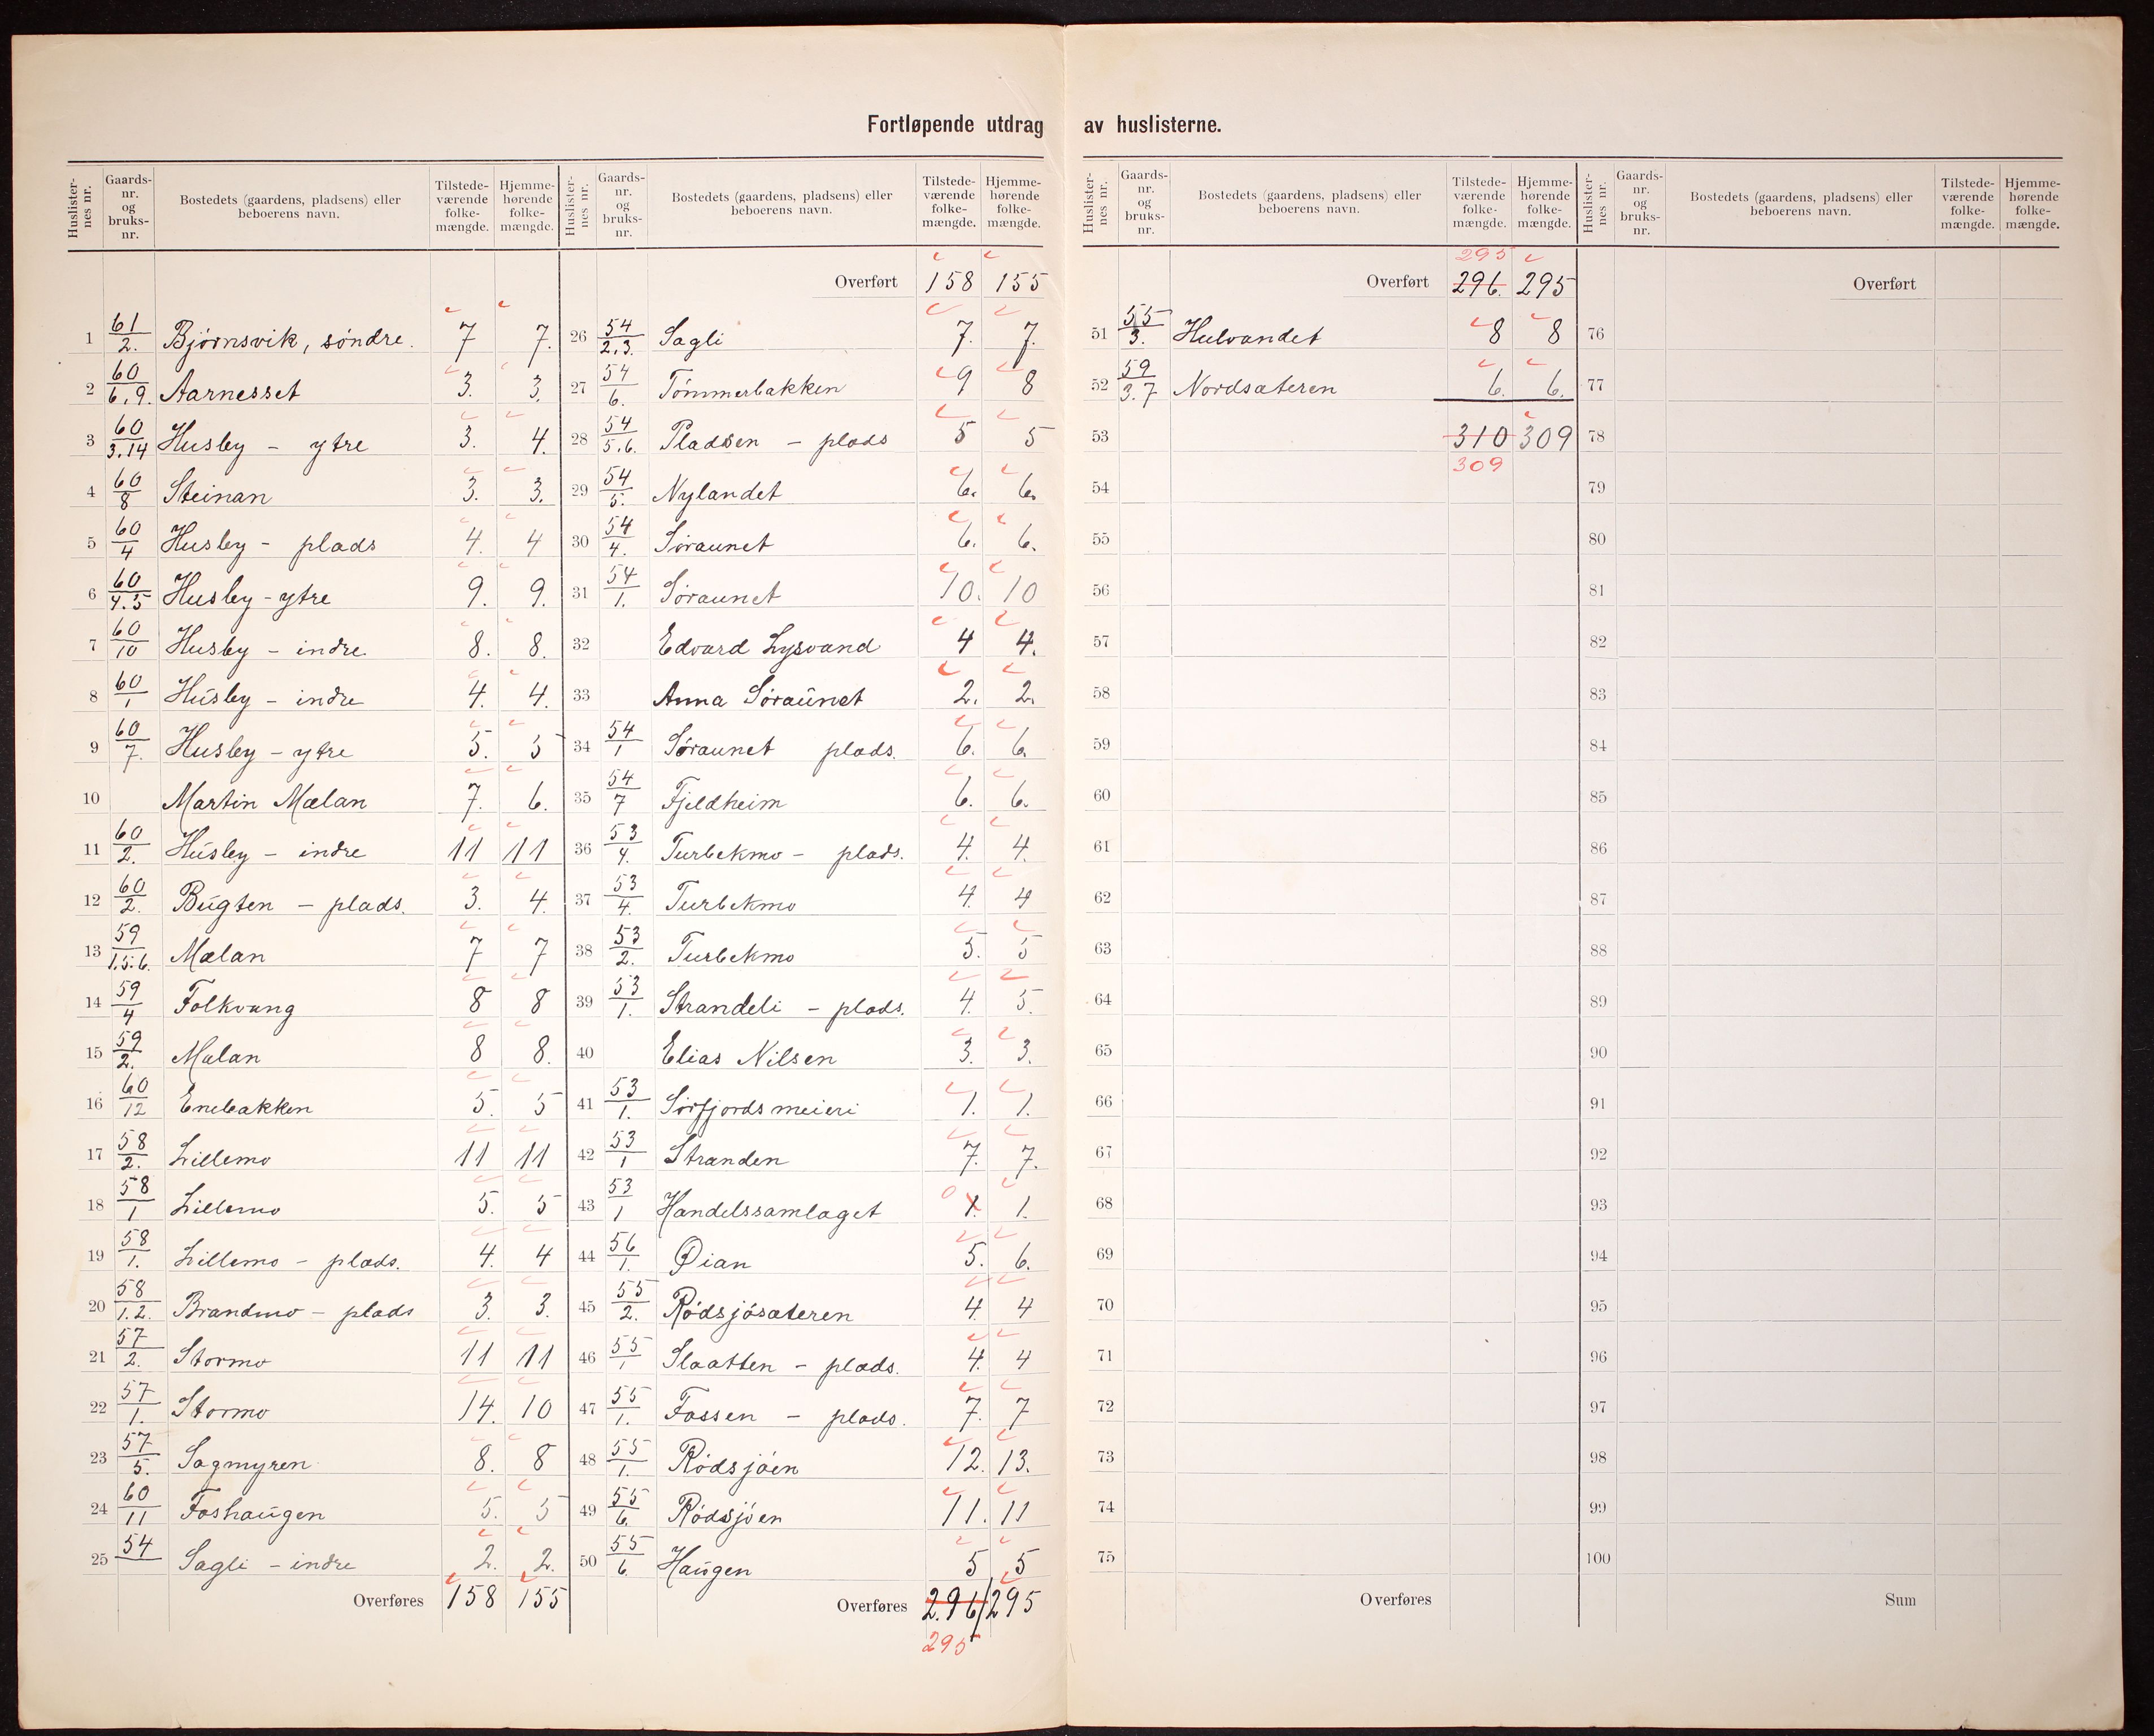 Fortløpende utdrag av huslisterne.
Huslisternes nr. | Gaardsnr. og bruksnr. | Bostedets (gaardens, pladsens) eller beboerens navn. | Tilstedeværende folkemængde. | Hjemmehørende folkemængde.
1 61/2. Bjørnsvik, søndre. 7 7.
2 60/6,9. Aarnesset 3. 3.
3 60/3.14 Husby - ytre 3. 4.
4 60/8 Steinan 3. 3.
5 60/4 Husby - plads 4. 4
6 60/4.5 Husby - ytre 9. 9.
7 60/10 Husby - indre. 8. 8.
8 60/1 Husby - indre 4. 4.
9 60/7. Husby - ytre 5. 5
10 Martin Mælan 7. 6.
11 60/2. Husby - indre 11 11
12 60/2. Bugten - plads. 3. 4.
13 59/1.5.6. Mælan 7 7
14 59/4 Folkvang 8 8
15 59/2. Mælan 8 8.
16 60/12 Enebakken 5. 5
17 58/2. Lillemo 11 11
18 58/1 Lillemo 5. 5
19 58/1. Lillemo - plads. 4. 4
20 58/1.2. Brandmo - plads 3. 3.
21 57/2. Stormo 11 11
22 57/1. Stormo 14. 10
23 57/5. Sagmyren 8. 8
24 60/11 Foshaugen 5. 5
25 54 Sagli - indre 2. 2.
Overføres 158 155
Huslisternes nr. | Gaardsnr. og bruksnr. | Bostedets (gaardens, pladsens) eller beboerens navn. | Tilstedeværende folkemængde. | Hjemmehørende folkemængde.
Overført 158 155
26 54/2,3. Sagli 7. 7.
27 54/6. Tømmerbakken 9 8
28 54/5.6. Pladsen - plads 5 5
29 54/5. Nylandet 6. 6.
30 54/4. Søraunet 6. 6.
31 54/1. Søraunet 10. 10
32 Edvard Lysvand 4 4.
33 Anna Søraunet 2. 2.
34 54/1 Søraunet plads. 6. 6.
35 54/7 Fjeldheim 6. 6.
36 53/4. Turbekmo - plads. 4. 4.
37 53/4. Turbekmo 4. 4
38 53/2. Turbekmo 5. 5
39 53/1. Strandeli - plads. 4. 5.
40 Elias Nilsen 3. 3.
41 53/1. Sørfjords meieri 1. 1.
42 53/1 Stranden 7. 7.
43 53/1 Handelssamlaget 0 1. 1.
44 56/1. Øian 5. 6.
45 55/2. Rødsjøsæteren 4. 4
46 55/1 Slaatten - plads. 4. 4
47 55/1. Fossen - plads. 7. 7
48 55/1. Rødsjøen 12. 13.
49 55/6. Rødsjøen 11. 11
50 55/6 Haugen 5 5
Overføres 296 295
295
Huslisternes nr. | Gaardsnr. og bruksnr. | Bostedets (gaardens, pladsens) eller beboerens navn. | Tilstedeværende folkemængde. | Hjemmehørende folkemængde.
295
Overført 296. 295
51 55/3. Hulvandet 8 8
52 59/3.7 Nordsæteren 6. 6.
53 310 309
309
54
55
56
57
58
59
60
61
62
63
64
65
66
67
68
69
70
71
72
73
74
75
Overføres
Huslisternes nr. | Gaardsnr. og bruksnr. | Bostedets (gaardens, pladsens) eller beboerens navn. | Tilstedeværende folkemængde. | Hjemmehørende folkemængde.
Overført
76
77
78
79
80
81
82
83
84
85
86
87
88
89
90
91
92
93
94
95
96
97
98
99
100
Sum